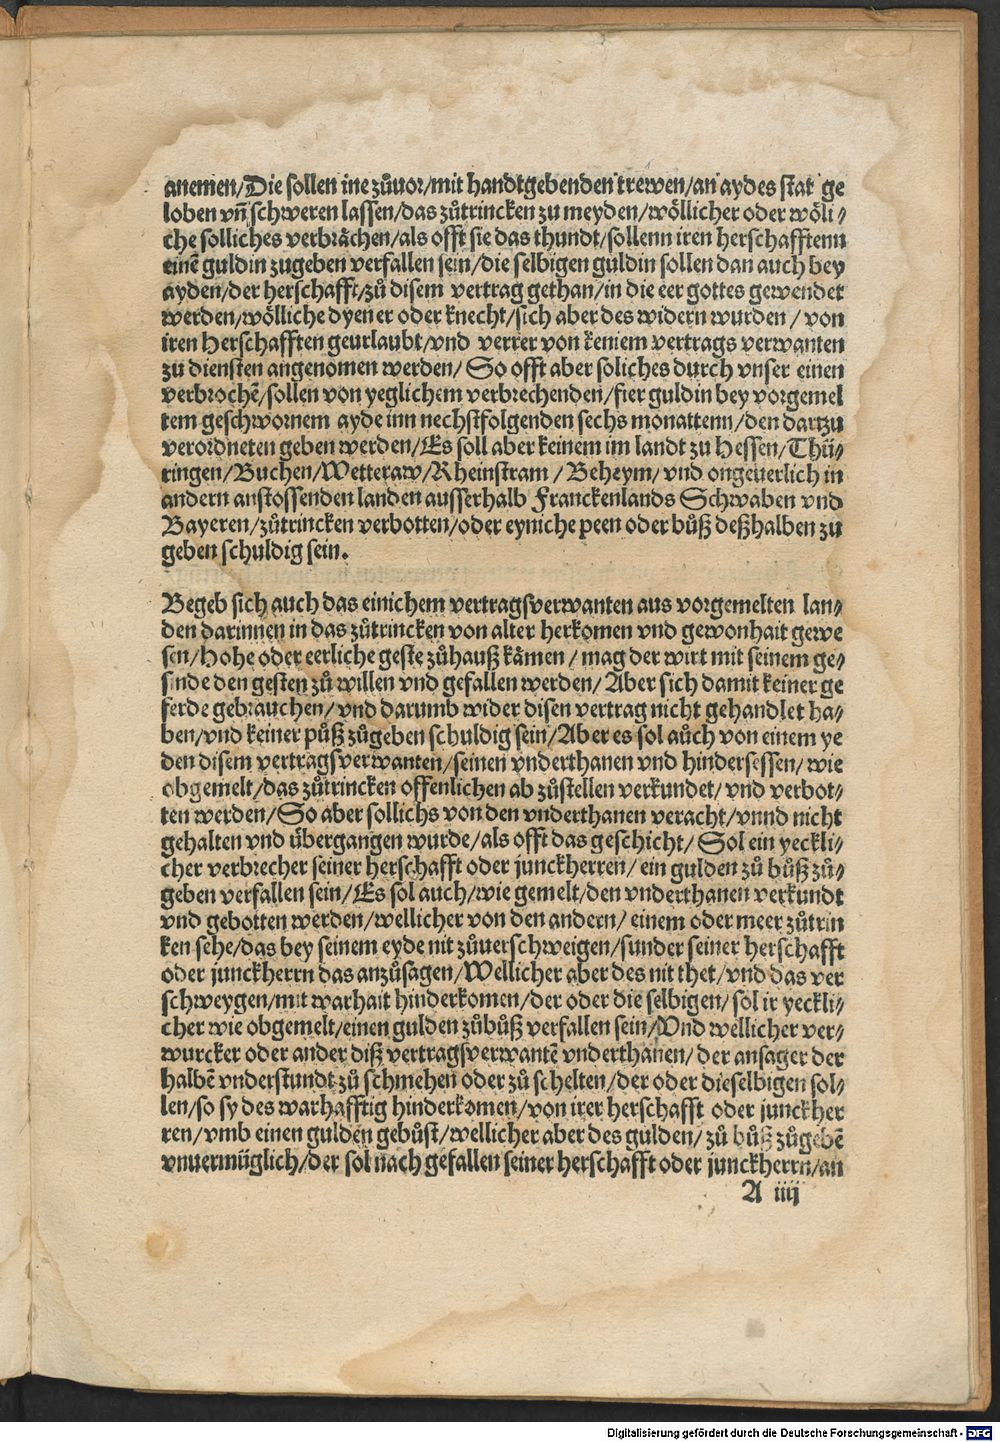 anemen/Die sollen ine zůuor/mit handtgebenden trewen/an aydes stat ge
loben vñ schweren lassen/das zůtrincken zu meyden/wöllicher oder wöli⸗
che solliches verbrächen/als offt sie das thundt/sollenn iren herschafftenn
einẽ guldin zugeben verfallen sein/die selbigen guldin sollen dan auch bey
ayden/der herschafft/zů disem vertrag gethan/in die eer gottes gewendet
werden/wölliche dyener oder knecht/sich aber des widern wurden/von
iren Herschafften geurlaubt/vnd verrer von keniem vertrags verwanten
zu diensten angenomen werden/So offt aber soliches durch vnser einen
verbrochẽ/sollen von yeglichem verbrechenden/fier guldin bey vorgemel
tem geschwornem ayde inn nechstfolgenden sechs monattenn/den dartzu
verordneten geben werden/Es soll aber keinem im landt zu Hessen/Thü⸗
ringen/Buchen/Wetteraw/Rheinstram/Beheym/vnd ongeuerlich in
andern anstossenden landen ausserhalb Franckenlands Schwaben vnd
Bayeren/zůtrincken verbotten/oder eyniche peen oder bůß deßhalben zu
geben schuldig sein.
Begeb sich auch das einichem vertragsverwanten aus vorgemelten lan⸗
den darinnen in das zůtrincken von alter herkomen vnd gewonhait gewe
sen/Hohe oder eerliche geste zůhauß kämen/mag der wirt mit seinem ge⸗
sinde den gesten zů willen vnd gefallen werden/Aber sich damit keiner ge
ferde gebrauchen/vnd darumb wider disen vertrag nicht gehandlet ha⸗
ben/vnd keiner půß zůgeben schuldig sein/Aber es sol aůch von einem ye
den disem vertragsverwanten/seinen vnderthanen vnd hindersessen/wie
obgemelt/das zůtrincken offenlichen ab zůstellen verkundet/vnd verbot⸗
ten werden/So aber sollichs von den vnderthanen veracht/vnnd nicht
gehalten vnd übergangen wurde/als offt das geschicht/Sol ein yeckli⸗
cher verbrecher seiner herschafft oder junckherren/ein gulden zů bůß zů⸗
geben verfallen sein/Es sol auch/wie gemelt/den vnderthanen verkundt
vnd gebotten werden/wellicher von den andern/einem oder meer zůtrin
ken sehe/das bey seinem eyde nit zůuerschweigen/sunder seiner herschafft
oder junckherrn das anzůsagen/Wellicher aber des nit thet/vnd das ver
schweygen/mit warhait hinderkomen/der oder die selbigen/sol ir yeckli⸗
cher wie obgemelt/einen gulden zůbůß verfallen sein/Vnd wellicher ver⸗
wurcker oder ander diß vertragsverwantẽ vnderthanen/der ansager der
halbẽ vnderstundt zů schmehen oder zů schelten/der oder dieselbigen sol⸗
len/so sy des warhafftig hinderkomen/von irer herschafft oder junckher
ren/vmb einen gulden gebůst/wellicher aber des gulden/zů bůß zůgebẽ
vnuermüglich/der sol nach gefallen seiner herschafft oder junckherrn/an
A iiij
Digitalisierung gefördert durch die Deutsche Forschungsgemeinschaft - DFG